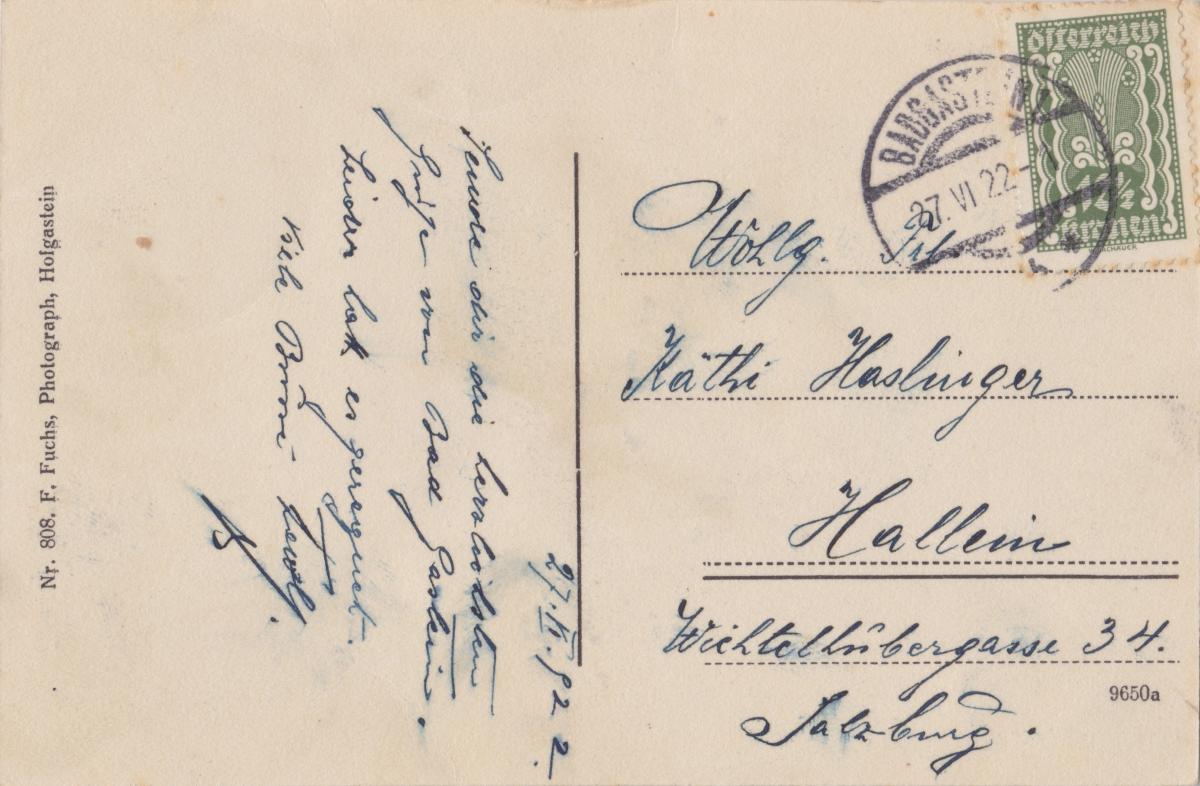 27. VI. 922.
Sende dir die herzlichsten
Grüße von Bad Gastein.
Leider hat es geregnet.
Viele
Nr. 808. F. Fuchs, Photograph, Hofgastein
Österreich
12½
Kronen
BADGASTEIN 1
27. VI 22 - 1
*
Wohlg. Frl
Käthi Haslinger
Hallein
Wichtelhubergasse 34.
Salzburg.
9650a